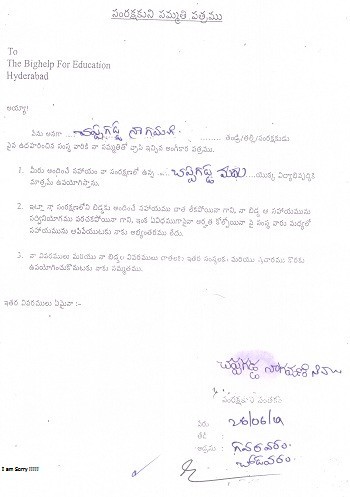 సంరక్షకుని సమ్మతి పత్రము
To
The Bighelp For Education
Hyderabad
అయ్యా!
నేను అనగా ... చప్పగడ్డి నాగమణి ... తండ్రి/తల్లి/సంరక్షకుడు
పైన ఉదహరించిన సంస్థ వారికి నా సమ్మతితో వ్రాసి ఇచ్చిన అంగీకార పత్రము.
1. మీరు అందించే సహాయం నా సంరక్షణలో ఉన్న ... చప్పగడ్డి మధు ... యొక్క విద్యాభివృద్ధికి
మాత్రమే ఉపయోగిస్తాను.
2. ఇట్లా నా సంరక్షణలోని బిడ్డకు అందించే సహాయము దాత లేకపోయినా గాని, నా బిడ్డ ఆ సహాయమును
సద్వినియోగము పరచకపోయినా గాని, ఇంక ఏవిధముగానైనా అర్హత కోల్పోయినా పై సంస్థ వారు మధ్యలో
సహాయమును ఆపివేయుటకు నాకు అభ్యంతరము లేదు.
3. నా వివరములు మరియు నా బిడ్డల వివరములు దాతలకు ఇతర సంస్థలకు మరియు ప్రచారము కొరకు
ఉపయోగించుకొనుటకు నాకు సమ్మతము.
ఇతర వివరములు ఏమైనా :-
చప్పగడ్డి నాగమణి
సంరక్షకుని సంతకం
పేరు
తేది :
అడ్రసు : గవరవరం
I am Sorry !!!!!